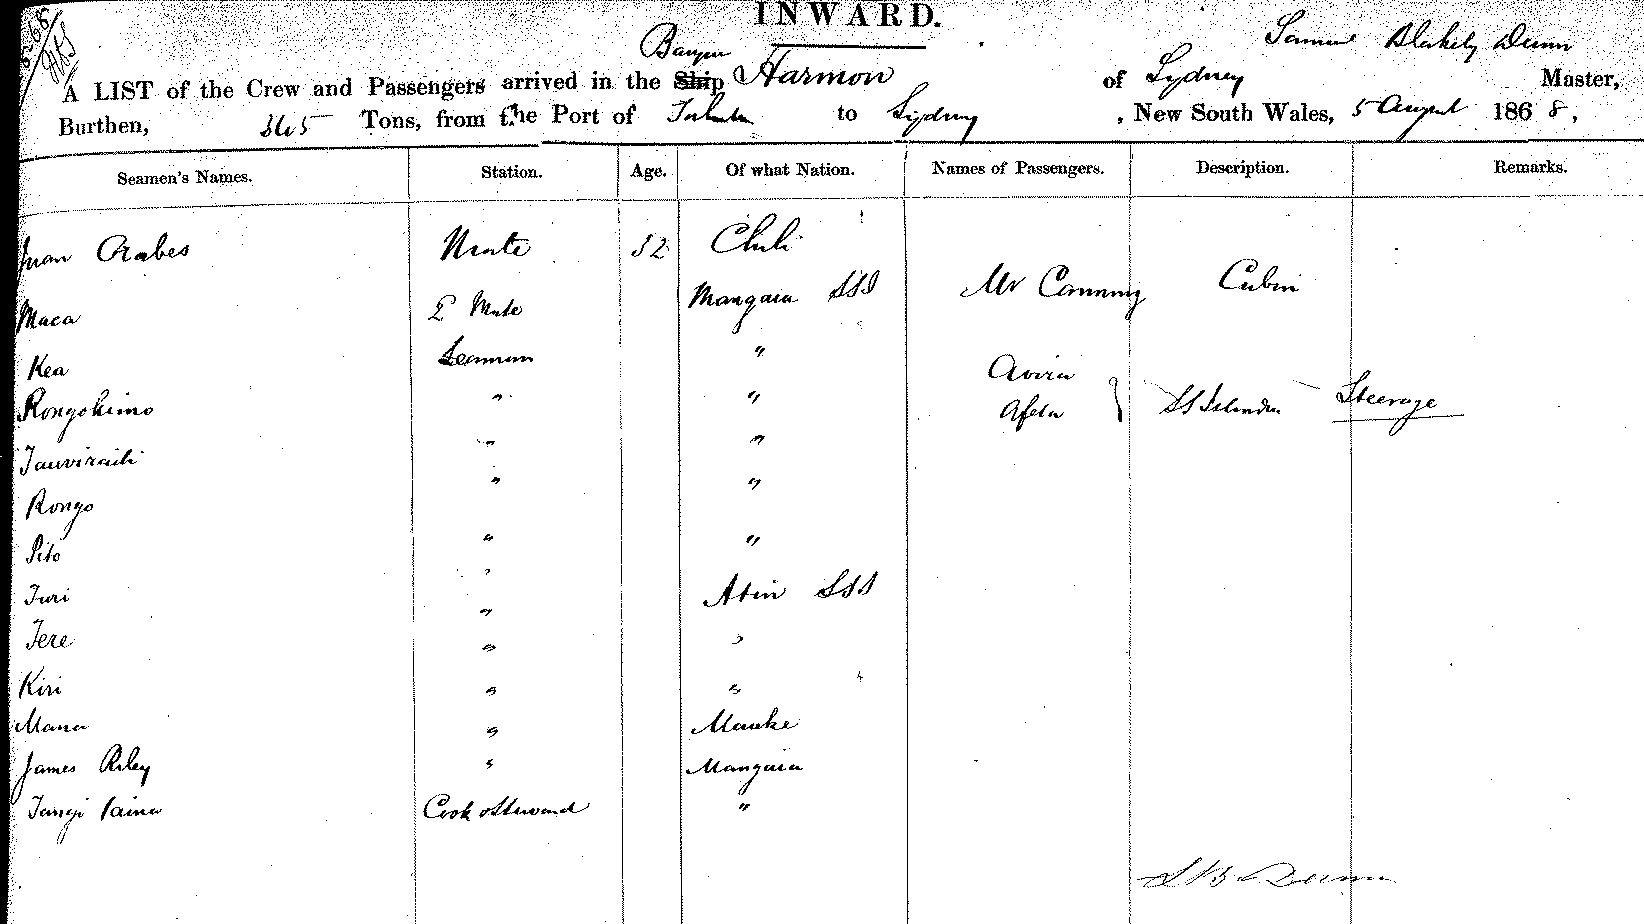 INWARD.
Samuel Blakely Dunn
Barque
A LIST of the Crew and Passengers arrived in the Ship Harmon of Sydney Master,
Burthen, 365 Tons, from the Port of to Sydney, New South Wales, 5 August 1868,
Seamen's Names. Station. Age. Of what Nation. Names of Passengers. Description. Remarks.
Juan Mate 52 Chili
Maca 2 Mate Mangaia SSI Mr Canning Cabin
Kea Seaman " Avira
Rongokimo " " Afeta } SS Islander Steerage
Tauviraiti " "
Rongo " "
Pito " "
Turi " Atiu SSI
Tere " "
Kiri " "
Mana " Mauke
James Riley " Mangaia
Tangi Taina Cook & Steward "
S B Dunn